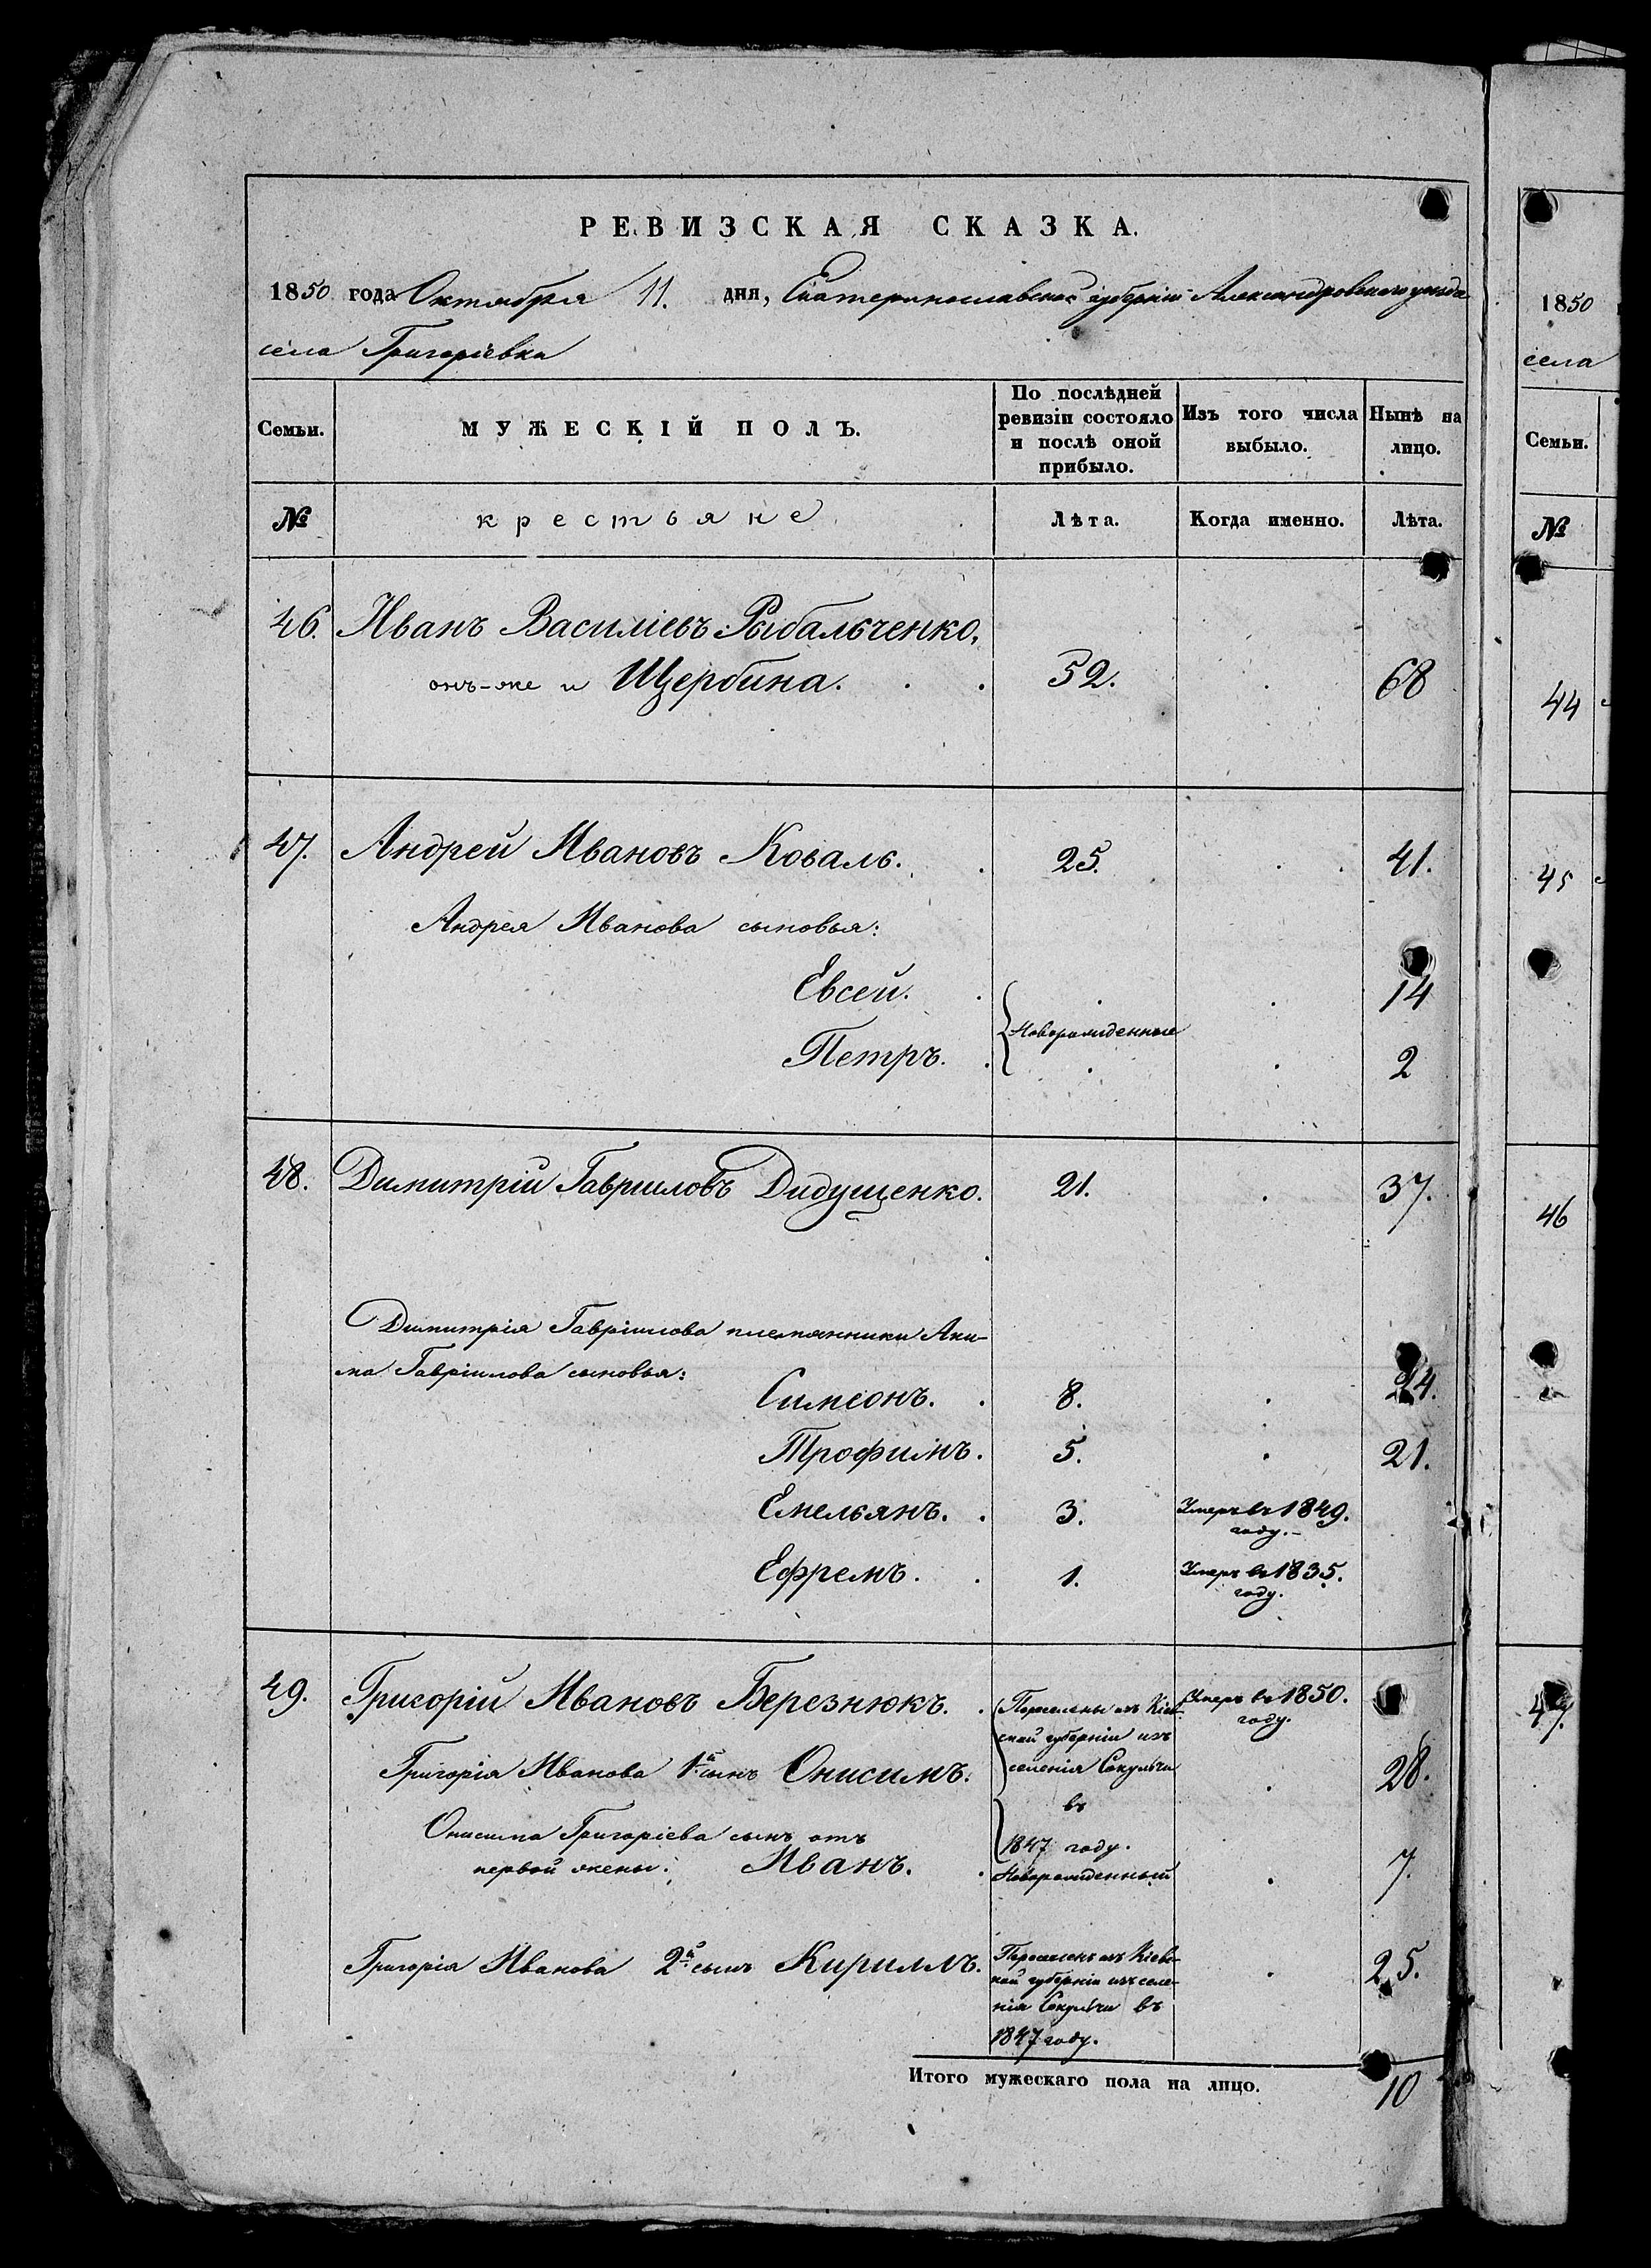 РЕВИЗСКАЯ СКАЗКА.
1850 года Октября 11. дня, Екатеринославской губернии Александровского уезда
села Григоріевки
Семьи. МУЖЕСКІЙ ПОЛЪ. По послѣдней ревизіи состояло и послѣ оной прибыло. Изъ того числа выбыло. Нынѣ на лицо.
№ крестьяне Лѣта. Когда именно. Лѣта.
46. Иванъ Василіевъ Рыбальченко,
онъ-же и Щербина. 52. 68
47. Андрей Ивановъ Коваль. 25. 41.
Андрея Иванова сыновья:
Евсей. 14
Новорожденные
Петръ. 2
48. Димитрій Гавриловъ Дидущенко. 21. 37.
Димитрія Гавріилова племянники Аки-
ма Гавріилова сыновья:
Симеонъ. 8. 24.
Трофимъ. 5. 21.
Емельянъ. 3. Умеръ въ 1849.
году.-
Ефремъ. 1. Умеръ въ 1835.
году.
49. Григорій Ивановъ Березнюкъ. Переселены изъ Кіев- Умеръ въ 1850.
ской губерніи изъ году.
Григорія Иванова 1й сынъ Онисимъ. селенія Сокульчи 28.
въ
Онисима Григоріева сынъ отъ 1847 году.
первой жены: Иванъ. Новорожденный 7.
Григорія Иванова 2й сынъ Кириллъ. Переселенъ изъ Кіевс- 25.
кой губерніи изъ селе-
нія Сокульчи въ
1847 году.
Итого мужескаго пола на лицо. 10
1850
села
Семьи.
№
44
45
46
47.